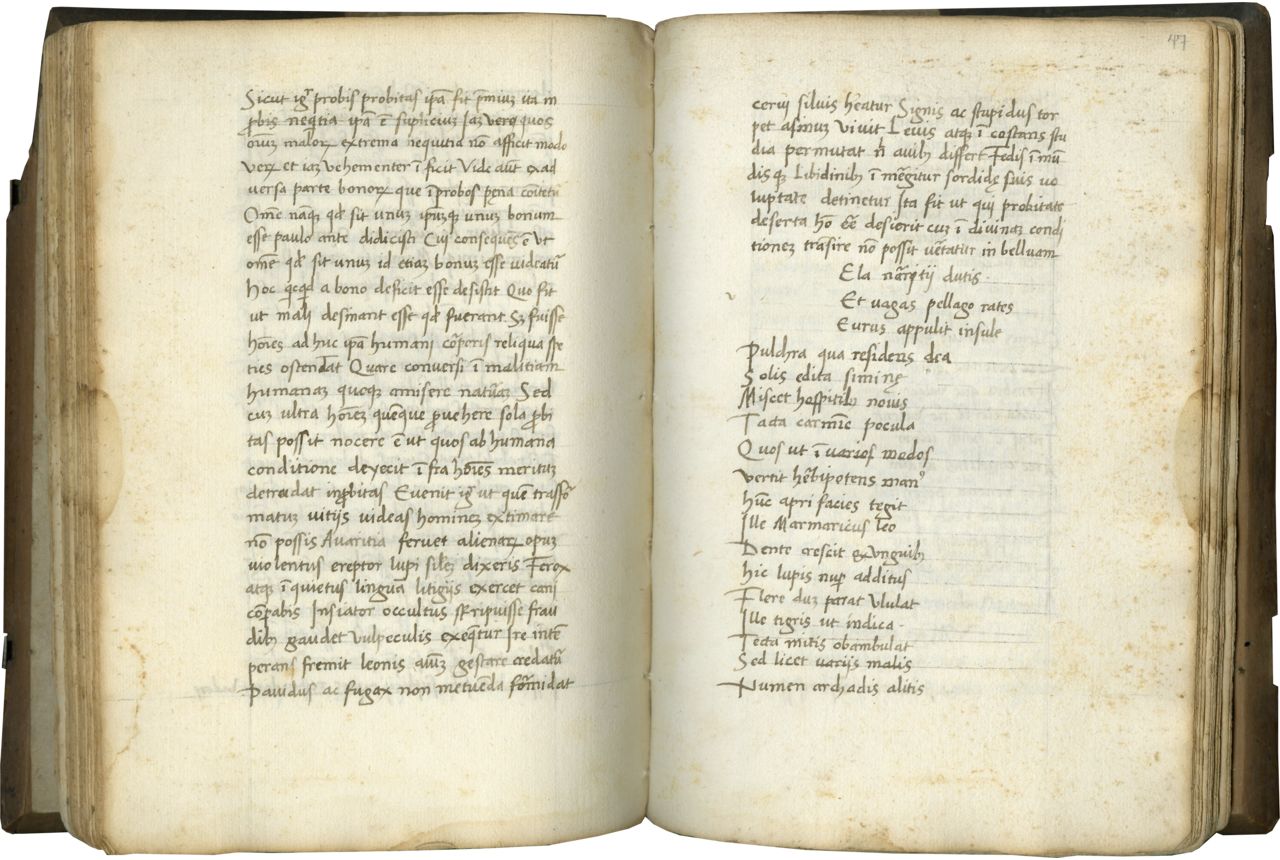 Sicut igr̃ probis probitas ip̃a fit p̃miuʒ ita in
ꝓbis neq̃tia ip̃a ẽ supliciuʒ Iaʒ vero quos
oĩuʒ maloꝝ extrema nequitia nõ afficit modo
veꝝ et iaʒ vehementer ĩficit Vide aũt exad
versa parte bonoꝝ que ĩprobos pęna cõitetr̃
Omẽ naqʒ qđ sit unuʒ ipsuqʒ unuʒ bonum
esse paulo ante didicisti Cui consequẽs ẽ ut
omẽ qđ sit unuʒ id etiaʒ bonuʒ esse videatũ
hoc qicqđ a bono deficit esse desistit Quo fit
ut mali desinant esse qđ fuerant Sʒ fuisse
hoĩes ad huc ip̃a humani cõrporis reliqua spe
ties ostendãt Quare conversi ĩ malitiam
humanaʒ quoqʒ amisere naturaʒ Sed
cuʒ ultra hoĩeʒ quẽque ꝓvehere sola ꝓbi
tas possit nocere ẽ ut quos ab humana
conditione deyecit ĩ fra hoĩes meritum
detrudat inꝓbitas Evenit igr̃ ut quẽ trãsfõ
matuʒ vitijs videas homineʒ extimare
nõ possis Avaritia fervet alienaꝝ opuʒ
violentus ereptor lupi sileʒ dixeris Ferox
atqʒ ĩquietus lingua litigijs exercet cani
cõpabis Insiator occultus sʀripuisse frau
dibʒ gaudet vulpeculis exeq̃tur Ire intẽ
perans fremit leonis aĩuʒ gestare credatũ
Pavidus ac fugax non metuẽda fõrmidat
47
cervi silvis h̃eatur Signis ac stupidus tor
pet asinuʒ vivit Levis atqʒ ĩ cõstans stu
dia permutat ñ avibʒ differt Fedis ĩ mũ
dis qʒ libidinibʒ ĩ mẽgitur sordidę suis vo
luptate detinetur Ita fit ut qui probitate
deserta hõ eẽ desierit cuʒ ĩ divinaʒ condi
tioneʒ trãsire nõ possit vẽratur in belluam
Ela nãrptij dutis.
Et vagas pellago rates
Eurus appulit insule
Pulchra qua residens dea
Solis edita siminę
Miscet hospitibʒ novis
Tacta carmĩe pocula
Quos ut ĩ varios modos
vertit hẽbipotens man⁹
hũc apri facies tegit
Ille Marmaricus leo
Dente crescit & vnguibʒ
hic lupis nuꝑ additus
Flere duʒ parat vlulat
Ille tigris ut indica.
Tecta mitis obambulat
Sed licet varijs malis
Numen archadis alitis